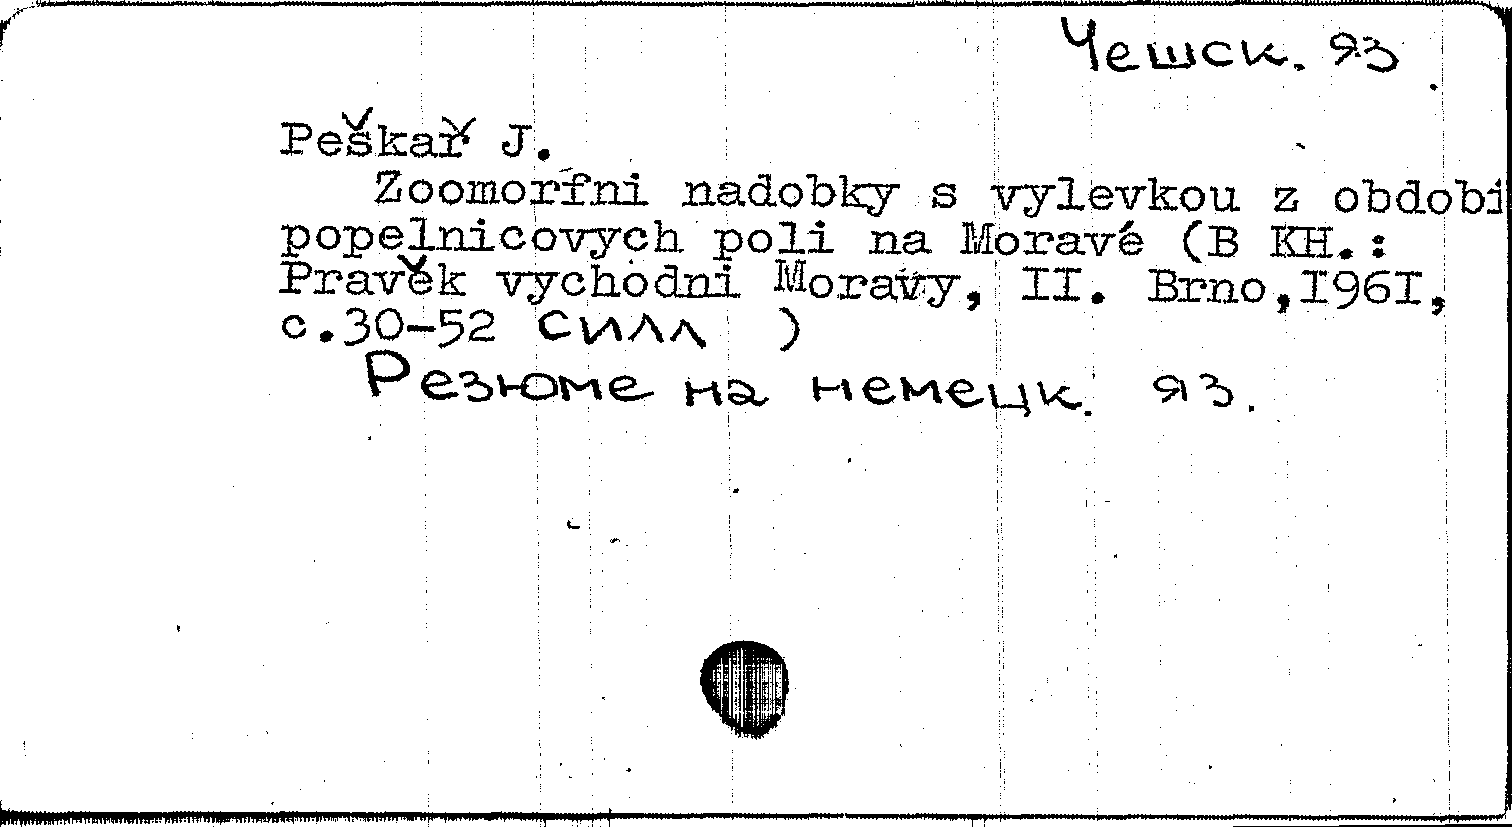 Чешск. яз.
Peškař J.
Zoomorfni nadobky s vylevkou z obdobi
popelnicovych poli na Moravé (В КН.:
Pravěk vychodni Moravy, II. Brno,I96I,
с.30-52 силл )
Резюме на немецк. яз.